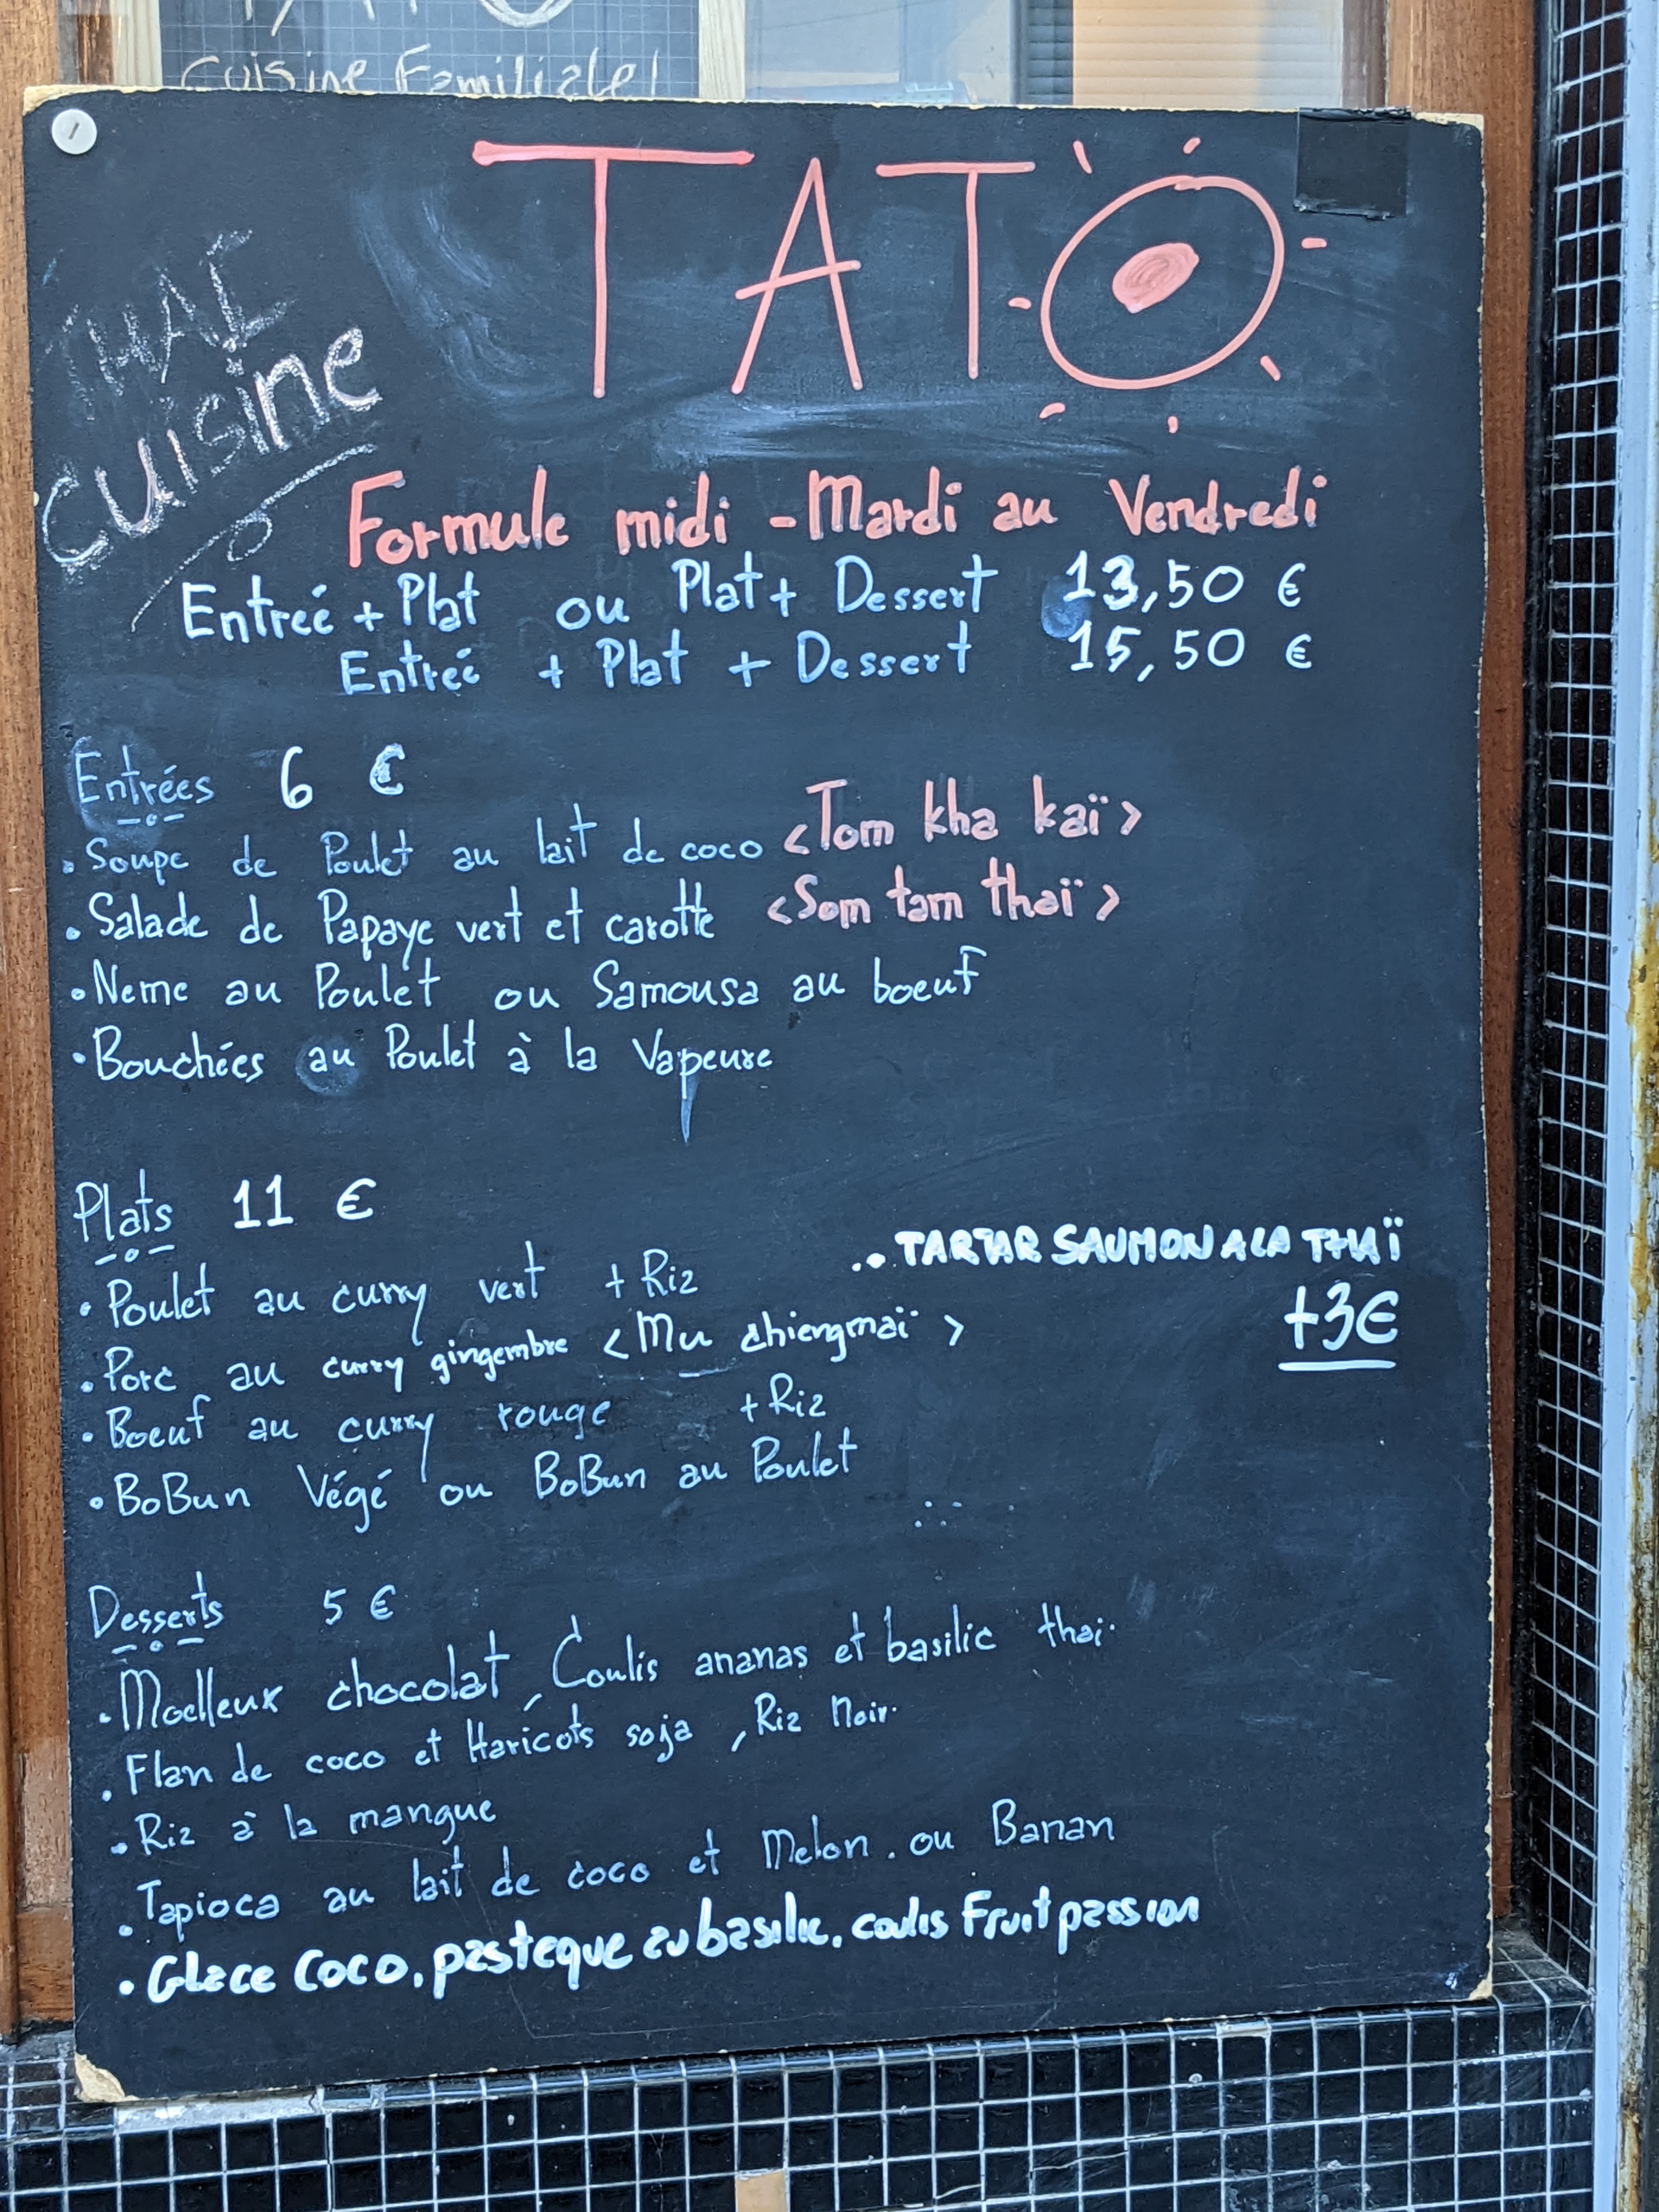 Cuisine Familiale!
TATO
THAI
Cuisine
Formule midi - Mardi au Vendredi
Entreé + Plat ou Plat + Dessert 13,50 €
Entreé + Plat + Dessert 15,50 €
Entrées 6 €
. Soupe de Poulet au lait de coco <Tom kha kaï>
. Salade de Papaye vert et carotte <Som tam thaï>
• Neme au Poulet ou Samousa au boeuf
• Bouchées au Poulet à la Vapeure
Plats 11 €
• Poulet au curry vert + Riz
. Porc au curry gingembre <Mu chiengmaï>
• Boeuf au curry rouge + Riz
• BoBun Végé ou BoBun au Poulet
.• TARTAR SAUMON A LA THAÏ
+3€
Desserts 5 €
. Moelleux chocolat, Coulis ananas et basilic thai.
. Flan de coco et Haricots soja, Riz Noir.
• Riz à la mangue
. Tapioca au lait de coco et Melon. ou Banan
• Glace Coco, pasteque au basilic, coulis Fruit passion